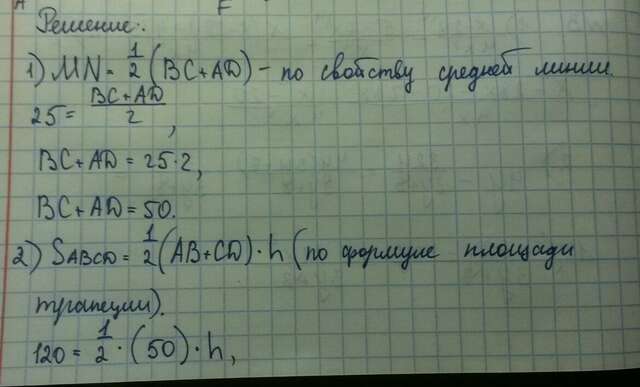 F
Решение:
1) MN = 1/2 (BC+AD) – по свойству средней линии.
25 = BC+AD/2,
BC+AD = 25·2,
BC+AD = 50.
2) SABCD = 1/2 (AB+CD)·h (по формуле площади
трапеции).
120 = 1/2 · (50)·h,